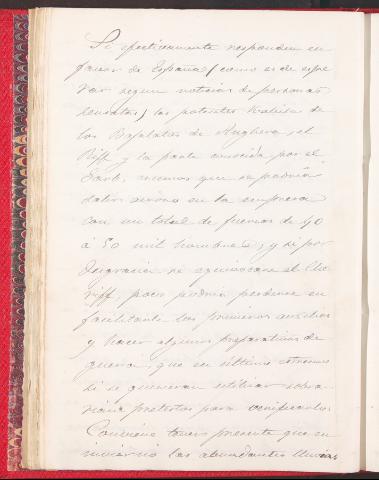 Si efectivamente responden en
favor de España (como es de espe
rar segun noticias de personas
sensatas) las potentes Kabilas de
los Bajalatos de Anghera, el
Riff y la parte conocida por el
Garb, menos que se podria
datos en la empresa
con un total de fuerzas de 40
á 50 mil hombres; y si por
desgracia se equivocase el Che
riff, poco podria perderse en
facilitarle los primeros auxilios
y hacer algunos preparativos de
guerra, que en último extremo
si se quisieran utilizar sobra
rian pretestos para verificarlo.
Conviene tener presente que en
invierno las abundantes lluvias